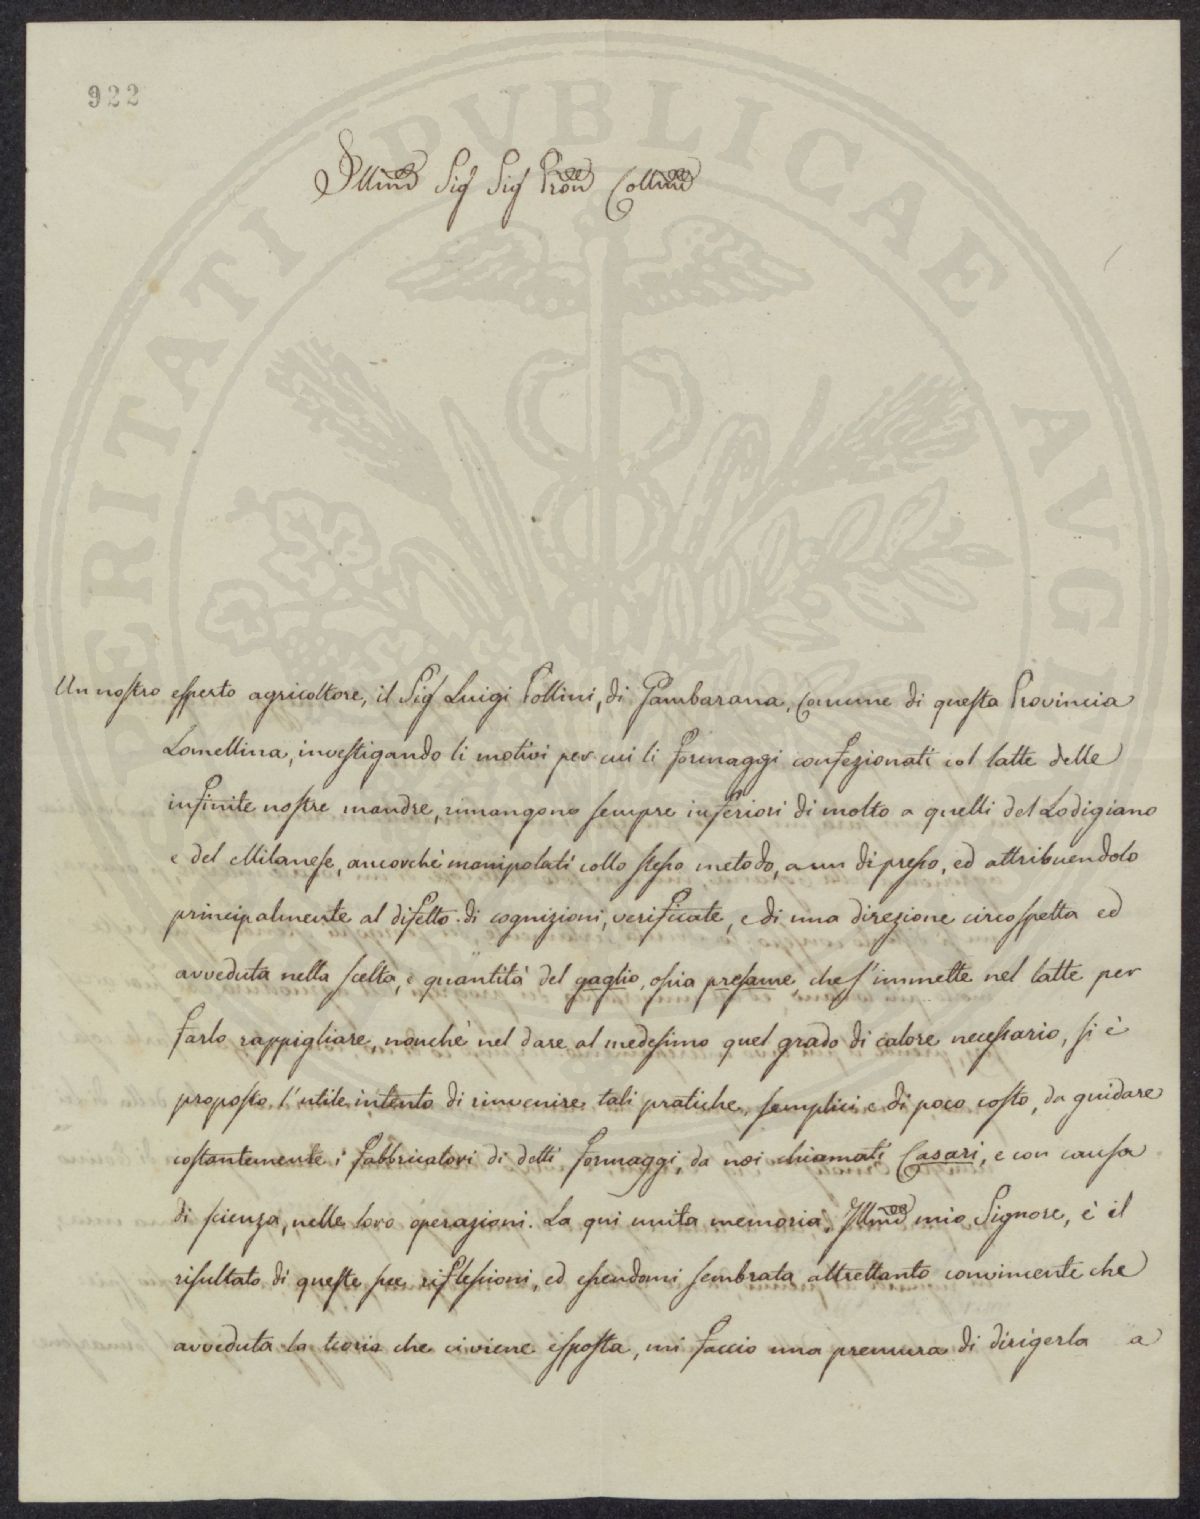 922
Illmo Sig Sig Pron Collmo
Un nostro esperto agricoltore, il Sig Luigi Pollini, di Gambarana, Comune di questa Provincia
Lomellina, investigando li motivi per cui li formaggi confezionati col latte delle
infinite nostre mandre, rimangono sempre inferiori di molto a quelli del Lodigiano
e del Milanese, ancorchè manipolati collo stesso metodo, a un di presso, ed attribuendolo
principalmente al difetto di cognizioni, verificate, e di una direzione circospetta ed
avveduta nella scelta, e quantità del gaglio, ossia presame, che s'immette nel latte per
farlo rappigliare, nonchè nel dare al medesimo quel grado di calore necessario, si è
proposto l'utile intento di rinvenire tali pratiche, semplici e di poco costo, da guidare
costantemente i fabbricatori di detti formaggi, da noi chiamati Casari, e con causa
di scienza, nelle loro operazioni. La qui unita memoria, Illmo mio Signore, è il
risultato di queste sue riflessioni, ed essendomi sembrata altrettanto convincente che
avveduta la teoria che ci viene esposta, mi faccio una premura di dirigerla a
PERITATI PUBLICAE AUG